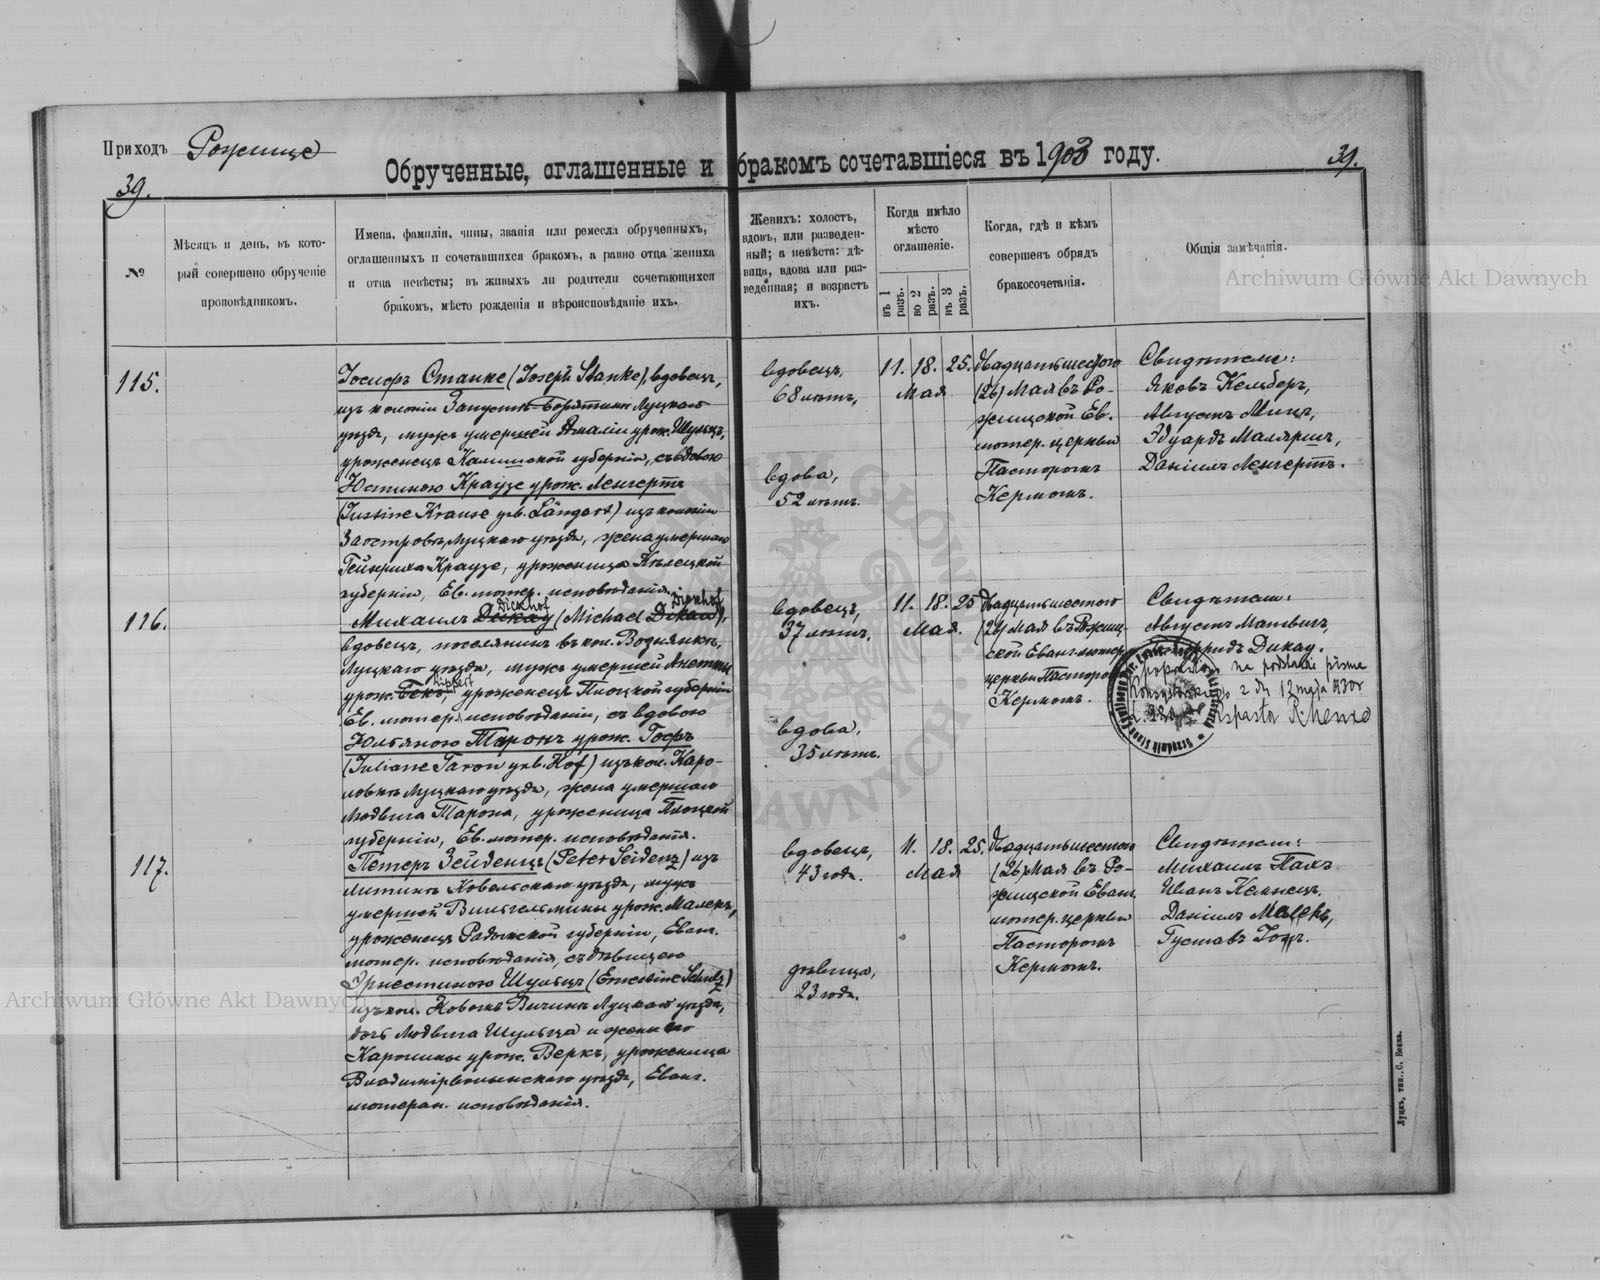 Приходъ Рожище
39.
Обрученные, оглашенные и бракомъ сочетавшіеся въ 1903 году.
39.
№
Мѣсяцъ и день, въ кото-
рый совершено обрученіе
проповѣдникомъ.
Имена, фамиліи, чины, званія или ремесла обрученныхъ,
оглашенныхъ и сочетавшихся бракомъ, а равно отца жениха
и отца невѣсты; въ живыхъ ли родители сочетающихся
бракомъ, мѣсто рожденія и вѣроисповѣданіе ихъ.
Женихъ: холостъ,
вдовъ, или разведен-
ный; а невѣста: дѣ-
вица, вдова или раз-
веденная; и возрастъ
ихъ.
Когда имѣло
мѣсто
оглашеніе.
въ 1 разъ.
во 2 разъ.
въ 3 разъ.
Когда, гдѣ и кѣмъ
совершенъ обрядъ
бракосочетанія.
Общія замѣчанія.
Archiwum Główne Akt Dawnych
115.
Іосифъ Станке (Joseph Stanke), вдовецъ,
изъ колоніи Запустъ-Борятинъ Луцкаго
уѣзда, мужъ умершей Амаліи урож. Шульцъ,
уроженецъ Калишской губерніи, съ вдовою
Юстиною Краузе урож. Ленгертъ
(Justine Krause geb. Längert) изъ колоніи
Заостровъ, Луцкаго уѣзда, жена умершаго
Гейнриха Краузе, уроженица Кѣлецкой
губерніи, Ев. лютер. исповѣданія.
вдовецъ,
68 лѣтъ,
вдова,
52 лѣтъ.
11. 18. 25.
Мая
Двадцатьшестого
(26) Мая въ Ро-
жищской Ев.
лютер. церкви
Пасторомъ
Кермомъ.
Свидѣтели:
Яковъ Кельберъ,
Августъ Мицъ,
Эдуардъ Маляришъ,
Даніилъ Ленгертъ.
116.
Dickhof Dickhof
Михаилъ Дикау (Michael Dikau),
вдовецъ, поселянинъ въ кол. Воднянкъ,
Луцкаго уѣзда, мужъ умершей Анетты
Lippert
урож. Бекъ, уроженецъ Плоцкой губерніи
Ев. лютер. исповѣданія, съ вдовою
Юльяною Таронъ урож. Гофъ
(Juliane Taron geb. Hof) изъ кол. Каро-
ловкъ Луцкаго уѣзда, жена умершаго
Людвига Тарона, уроженица Плоцкой
губерніи, Ев. лютер. исповѣданія.
вдовецъ,
37 лѣтъ.
вдова,
35 лѣтъ.
11. 18. 25
Мая.
Двадцатьшестого
(26) Мая въ Рожищ-
ской Еванг. лютер.
церкви Пасторомъ
Кермомъ.
Свидѣтели:
Августъ Матвигъ,
Дикау.
poprawiono na podstawie pisma
Konsystorskiego z dn 12 maja 1930r
117.
Петеръ Зейденцъ (Peter Seidenz) изъ
Литинъ Ковельскаго уѣзда, мужъ
умершой Вильгельмины урож. Малекъ,
уроженецъ Радомской губерніи, Еванг.
лютер. исповѣданія, съ дѣвицею
Эрнестиною Шульцъ (Ernestine Schulz)
изъ кол. Новокъ Вичинъ Луцкаго уѣзда,
дочь Людвига Шульца и жены его
Каролины урож. Веркъ, уроженица
Владимірволынскаго уѣзда, Еванг.
лютеран. исповѣданія.
вдовецъ,
43 года.
дѣвица,
23 года.
11. 18. 25.
Мая
Двадцатьшестого
(26) Мая въ Ро-
жищской Еванг.
лютер. церкви
Пасторомъ
Кермомъ.
Свидѣтели:
Михаилъ Палъ
Иванъ Кеннецъ.
Даніилъ Малекъ,
Густавъ
Archiwum Główne Akt Dawnych
Луцкъ, тип. С. Бокка.